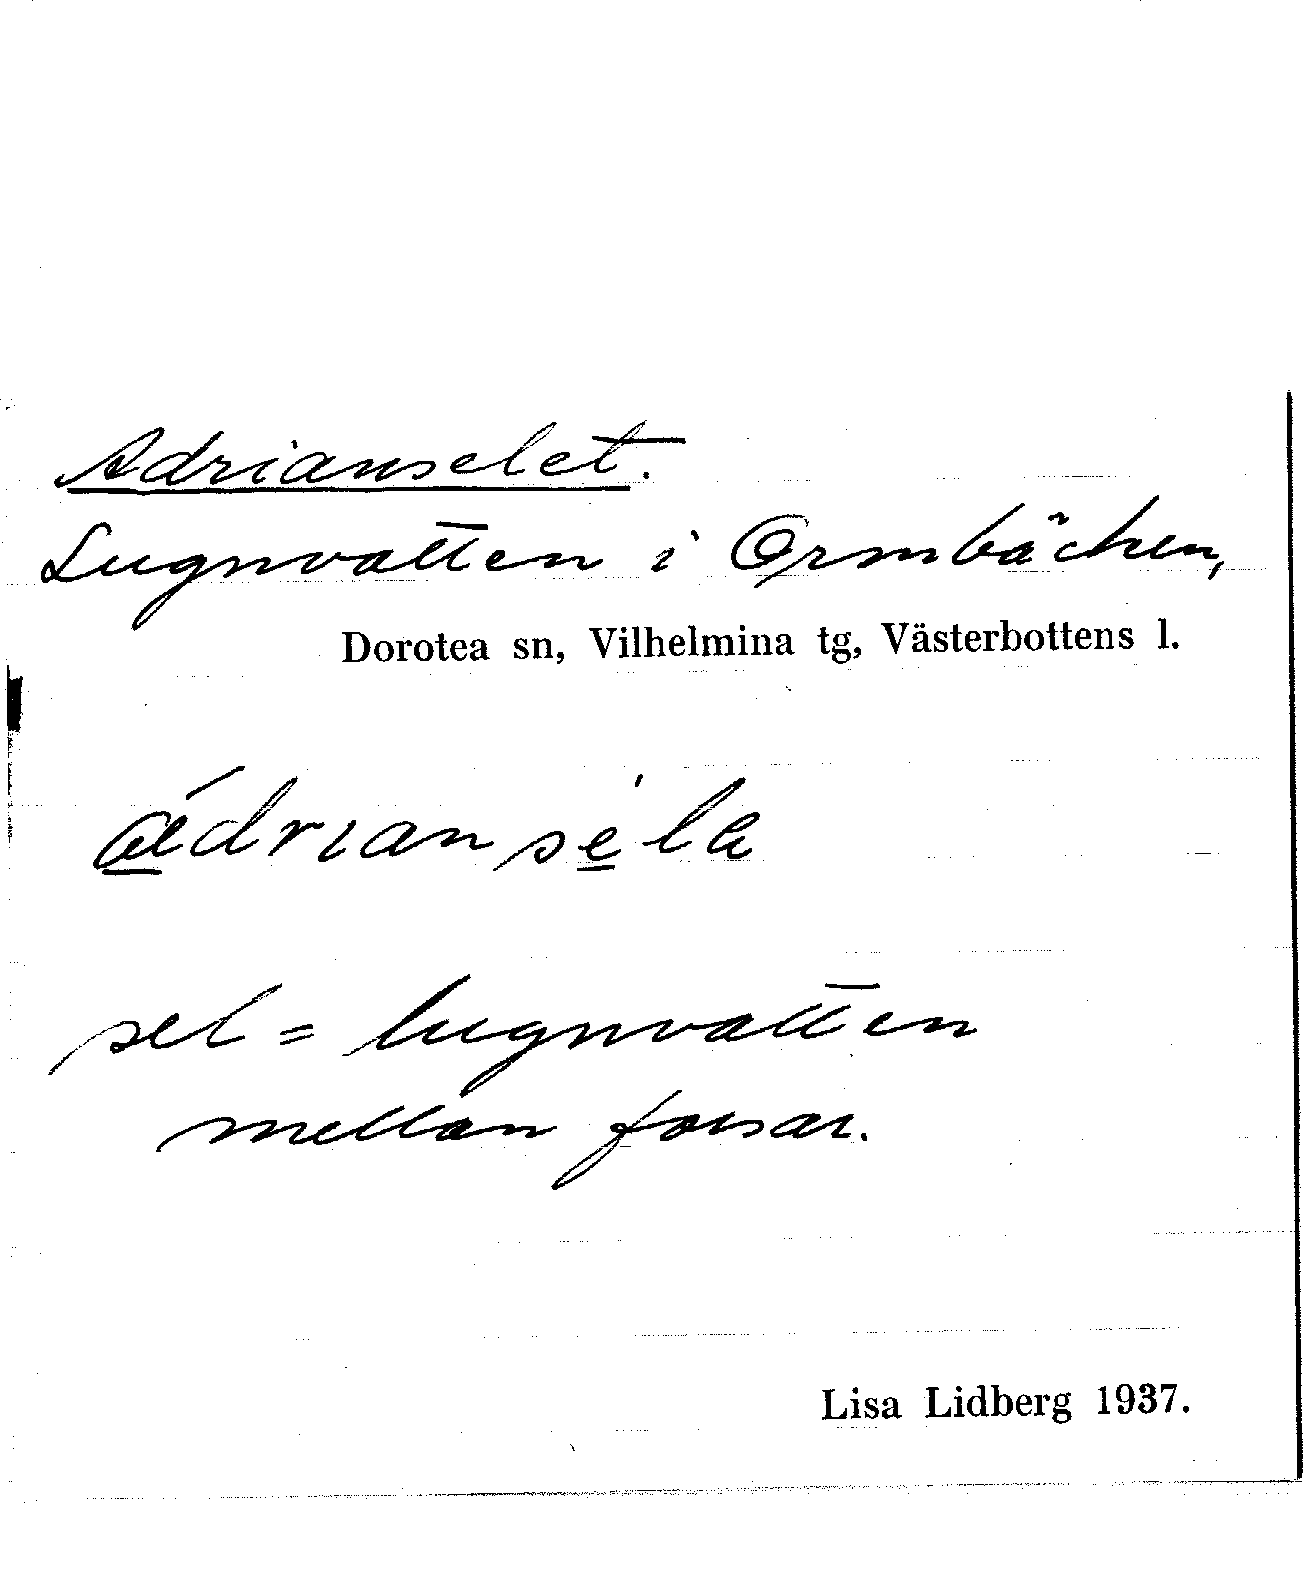 Adrianselet.
Lugnvatten i Ormbäcken,
Dorotea sn, Vilhelmina tg, Västerbottens l.
sel = lugnvatten
mellan forsar.
Lisa Lidberg 1937.